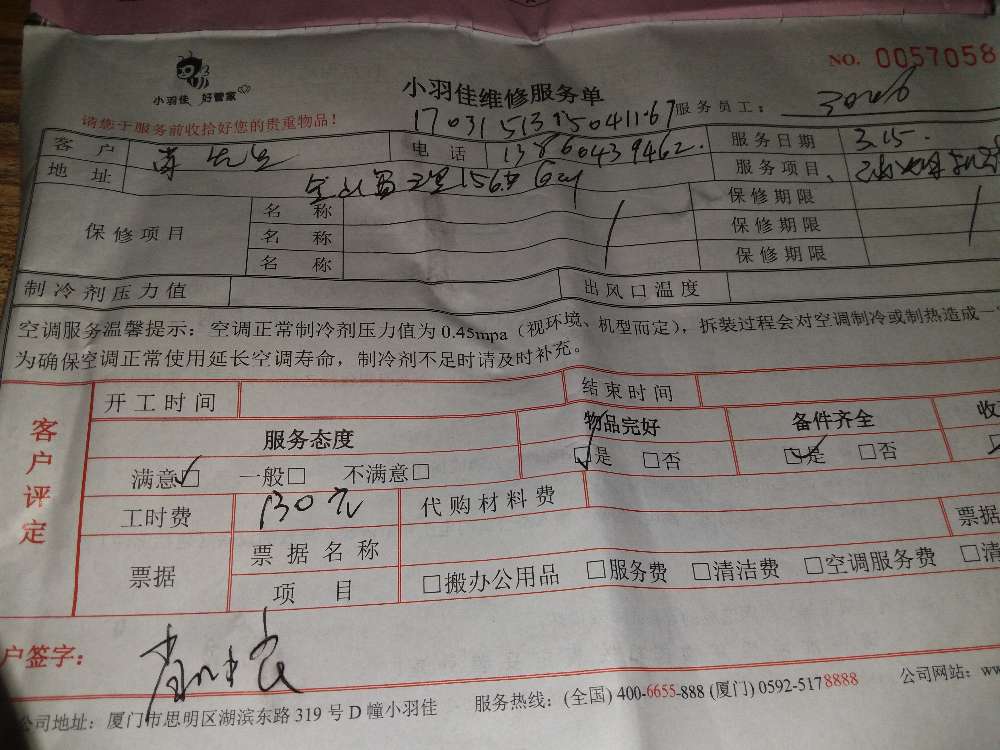 NO. 0057058
小羽佳 好管家
小羽佳维修服务单
请您于服务前收拾好您的贵重物品！
17031513150411167 服务员工：
客户 电话 13860439462. 服务日期 3.15.
地址 服务项目
保修项目 名称 保修期限
名称 保修期限
名称 保修期限
制冷剂压力值 出风口温度
空调服务温馨提示：空调正常制冷剂压力值为0.45mpa（视环境、机型而定），拆装过程会对空调制冷或制热造成一
为确保空调正常使用延长空调寿命，制冷剂不足时请及时补充。
客户评定
开工时间 结束时间
服务态度 物品完好 备件齐全 收
满意☑ 一般□ 不满意□ ☑是 □否 ☑是 □否
工时费 130元 代购材料费
票据 票据名称 票据
项目 □搬办公用品 □服务费 □清洁费 □空调服务费 □清
户签字：
公司地址：厦门市思明区湖滨东路319号D幢小羽佳 服务热线：(全国) 400-6655-888 (厦门) 0592-5178888 公司网站：ww